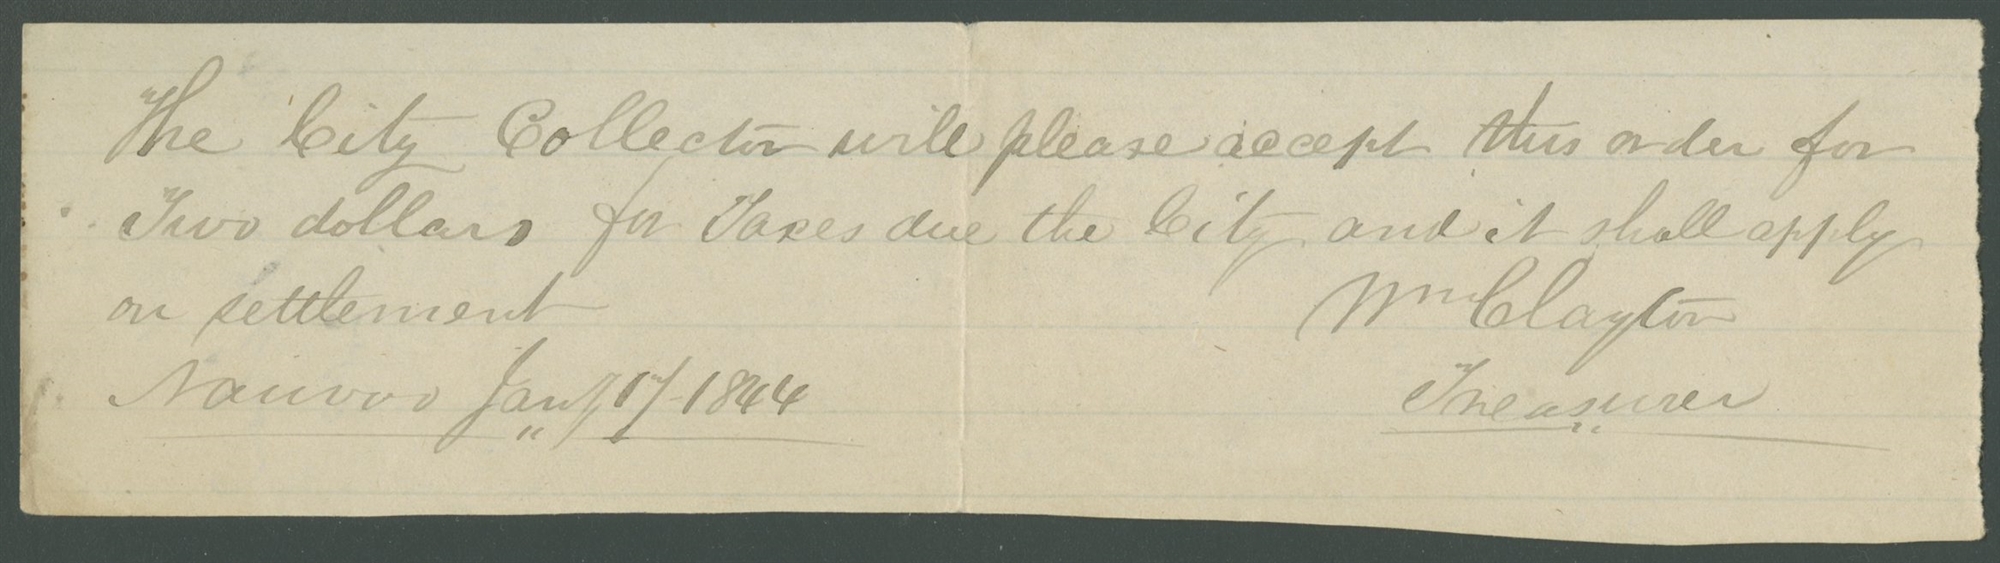 The City Collector will please accept this order for
Two dollars for Taxes due the City and it shall apply
on settlement
Wm Clayton
Nauvoo Jany 17 1844
Treasurer